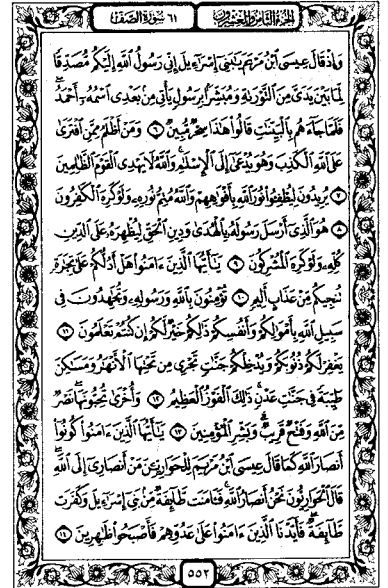 الجزء الثامن والعشرون ٦١ سورة الصف
وَإِذْ قَالَ عِيسَى ٱبْنُ مَرْيَمَ يَٰبَنِىٓ إِسْرَٰٓءِيلَ إِنِّى رَسُولُ ٱللَّهِ إِلَيْكُم مُّصَدِّقًا
لِّمَا بَيْنَ يَدَىَّ مِنَ ٱلتَّوْرَىٰةِ وَمُبَشِّرًۢا بِرَسُولٍ يَأْتِى مِنۢ بَعْدِى ٱسْمُهُۥٓ أَحْمَدُ ۖ
فَلَمَّا جَآءَهُم بِٱلْبَيِّنَٰتِ قَالُوا۟ هَٰذَا سِحْرٌ مُّبِينٌ ٦ وَمَنْ أَظْلَمُ مِمَّنِ ٱفْتَرَىٰ
عَلَى ٱللَّهِ ٱلْكَذِبَ وَهُوَ يُدْعَىٰٓ إِلَى ٱلْإِسْلَٰمِ ۚ وَٱللَّهُ لَا يَهْدِى ٱلْقَوْمَ ٱلظَّٰلِمِينَ
٧ يُرِيدُونَ لِيُطْفِـُٔوا۟ نُورَ ٱللَّهِ بِأَفْوَٰهِهِمْ وَٱللَّهُ مُتِمُّ نُورِهِۦ وَلَوْ كَرِهَ ٱلْكَٰفِرُونَ
٨ هُوَ ٱلَّذِىٓ أَرْسَلَ رَسُولَهُۥ بِٱلْهُدَىٰ وَدِينِ ٱلْحَقِّ لِيُظْهِرَهُۥ عَلَى ٱلدِّينِ
كُلِّهِۦ وَلَوْ كَرِهَ ٱلْمُشْرِكُونَ ٩ يَٰٓأَيُّهَا ٱلَّذِينَ ءَامَنُوا۟ هَلْ أَدُلُّكُمْ عَلَىٰ تِجَٰرَةٍ
تُنجِيكُم مِّنْ عَذَابٍ أَلِيمٍ ١٠ تُؤْمِنُونَ بِٱللَّهِ وَرَسُولِهِۦ وَتُجَٰهِدُونَ فِى
سَبِيلِ ٱللَّهِ بِأَمْوَٰلِكُمْ وَأَنفُسِكُمْ ۚ ذَٰلِكُمْ خَيْرٌ لَّكُمْ إِن كُنتُمْ تَعْلَمُونَ ١١
يَغْفِرْ لَكُمْ ذُنُوبَكُمْ وَيُدْخِلْكُمْ جَنَّٰتٍ تَجْرِى مِن تَحْتِهَا ٱلْأَنْهَٰرُ وَمَسَٰكِنَ
طَيِّبَةً فِى جَنَّٰتِ عَدْنٍ ۚ ذَٰلِكَ ٱلْفَوْزُ ٱلْعَظِيمُ ١٢ وَأُخْرَىٰ تُحِبُّونَهَا ۖ نَصْرٌ
مِّنَ ٱللَّهِ وَفَتْحٌ قَرِيبٌ ۗ وَبَشِّرِ ٱلْمُؤْمِنِينَ ١٣ يَٰٓأَيُّهَا ٱلَّذِينَ ءَامَنُوا۟ كُونُوٓا۟
أَنصَارَ ٱللَّهِ كَمَا قَالَ عِيسَى ٱبْنُ مَرْيَمَ لِلْحَوَارِيِّۦنَ مَنْ أَنصَارِىٓ إِلَى ٱللَّهِ ۖ
قَالَ ٱلْحَوَارِيُّونَ نَحْنُ أَنصَارُ ٱللَّهِ ۖ فَـَٔامَنَت طَّآئِفَةٌ مِّنۢ بَنِىٓ إِسْرَٰٓءِيلَ وَكَفَرَت
طَّآئِفَةٌ ۖ فَأَيَّدْنَا ٱلَّذِينَ ءَامَنُوا۟ عَلَىٰ عَدُوِّهِمْ فَأَصْبَحُوا۟ ظَٰهِرِينَ ١٤
٥٥٢